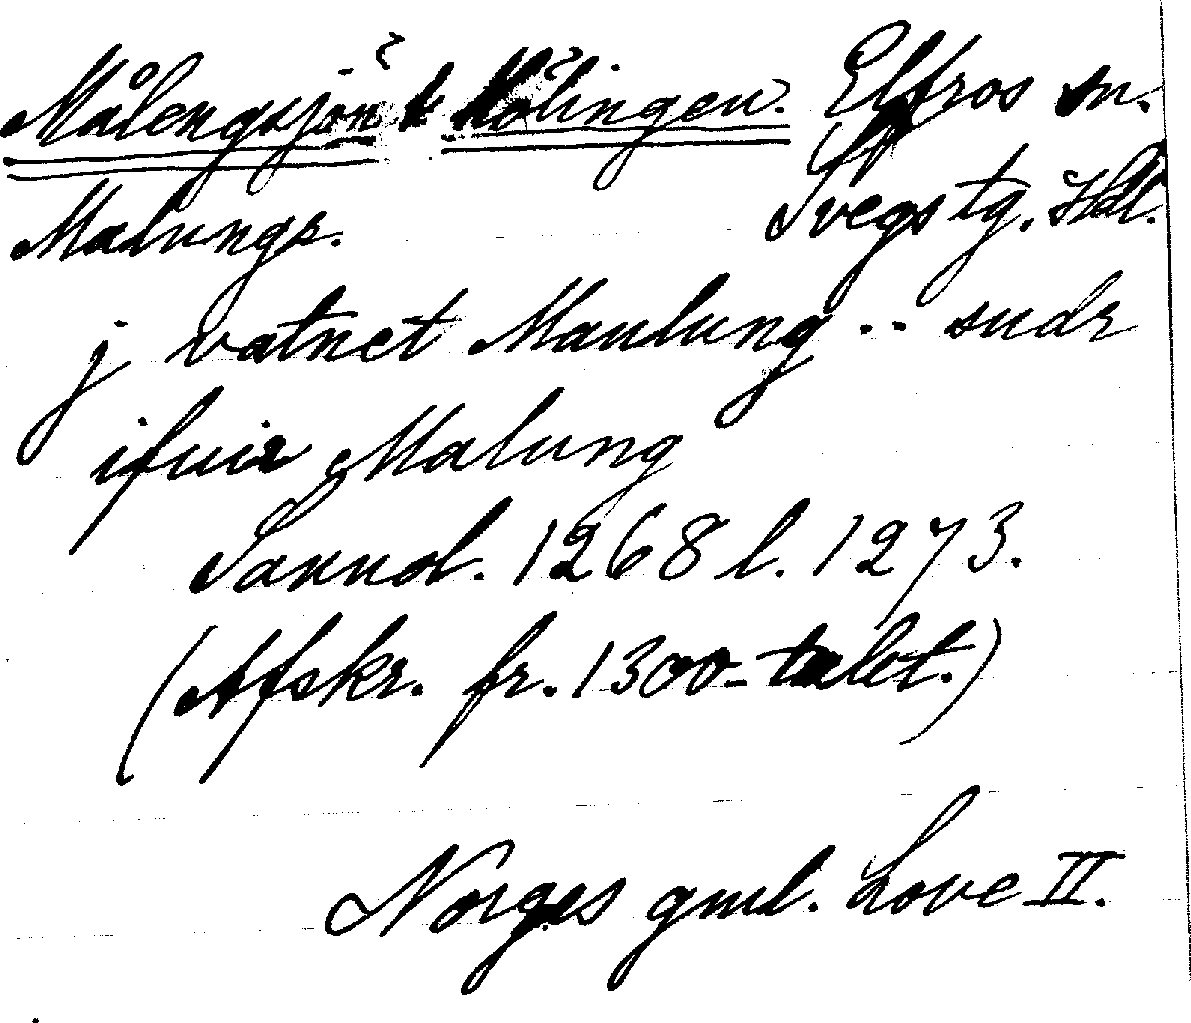 Målengsjön Elfros sn.
Malungs. Svegs tg. Hdl.
j vatnet Maulung .. sudr
ifuir Malung
Sannol. 1268 l. 1273.
(Afskr. fr. 1300-talet.)
Norges gml. Love II.